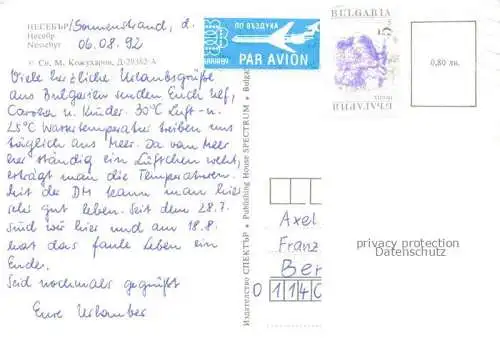 НЕСЕБЪР/Sonnenstrand, d.
Несебр 06.08.92
Nessebyr
© Св. М. Кожухаров, Д-29382-А
Viele herzliche Urlaubsgrüße
aus Bulgarien senden Euch Ulf,
Carola u. Kinder. 30°C Luft- u.
25°C Wassertemperatur treiben uns
täglich ans Meer. Da vom Meer
her ständig ein Lüftchen weht,
erträgt man die Temperaturen.
Mit der DM kann man hier
sehr gut leben. Seit dem 28.7.
sind wir hier und am 18.8.
hat das faule Leben ein
Ende.
Seid nochmals gegrüßt
Eure Urlauber
ПО ВЪЗДУХА
PAR AVION
BULGARIA
5
БЪЛГАРИЯ
0,80 лв.
Издателство СПЕКТЪР • Publishing House SPECTRUM •
Axel
Franz
Ber
O 114
privacy protection
Datenschutz